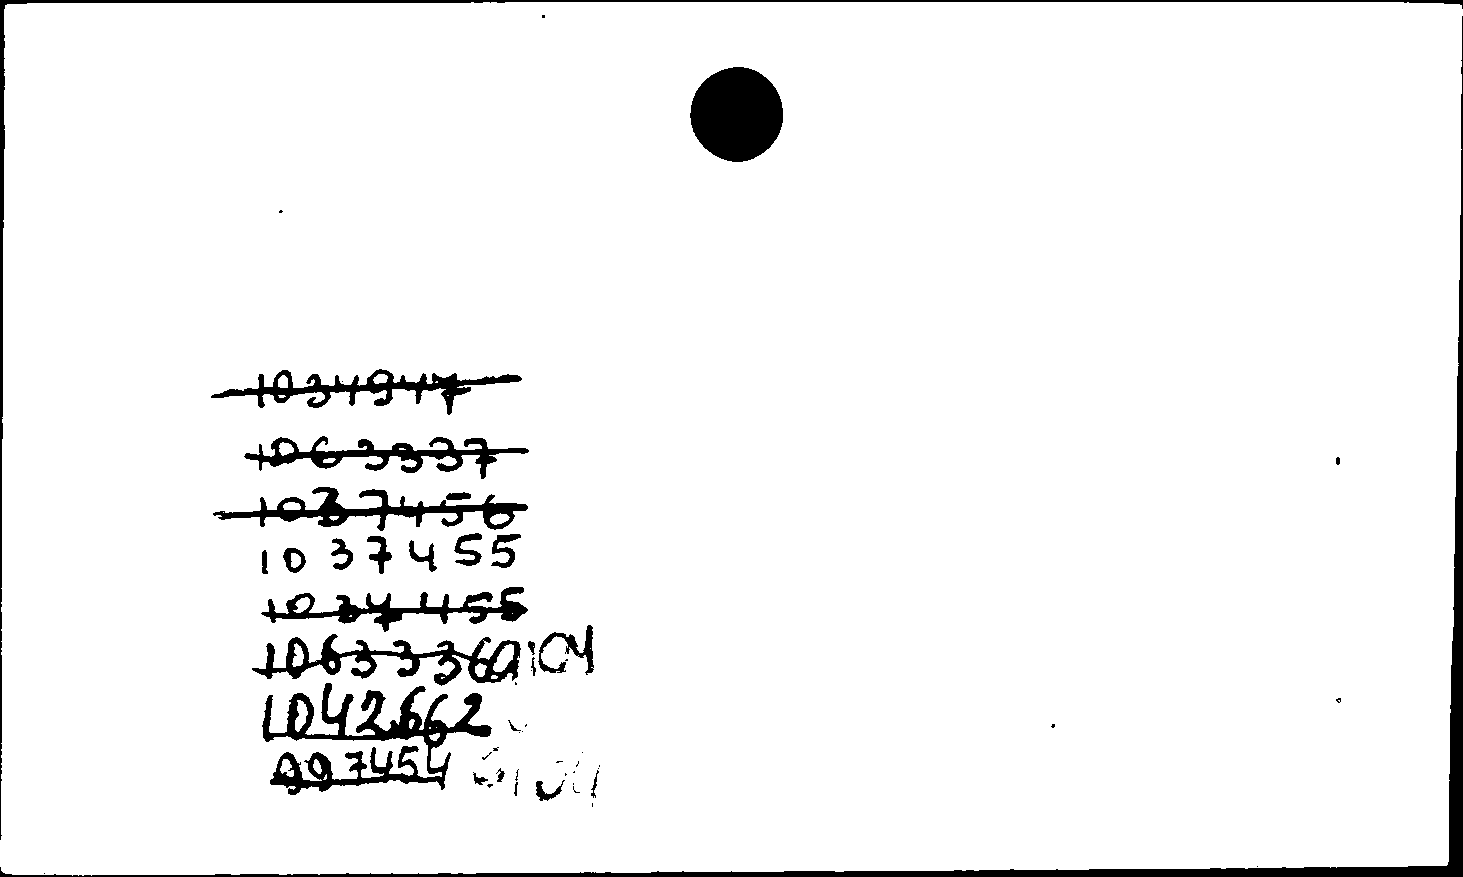 1034947
1063337
1037456
1037455
1037455
1063336 9104
1042662
997454